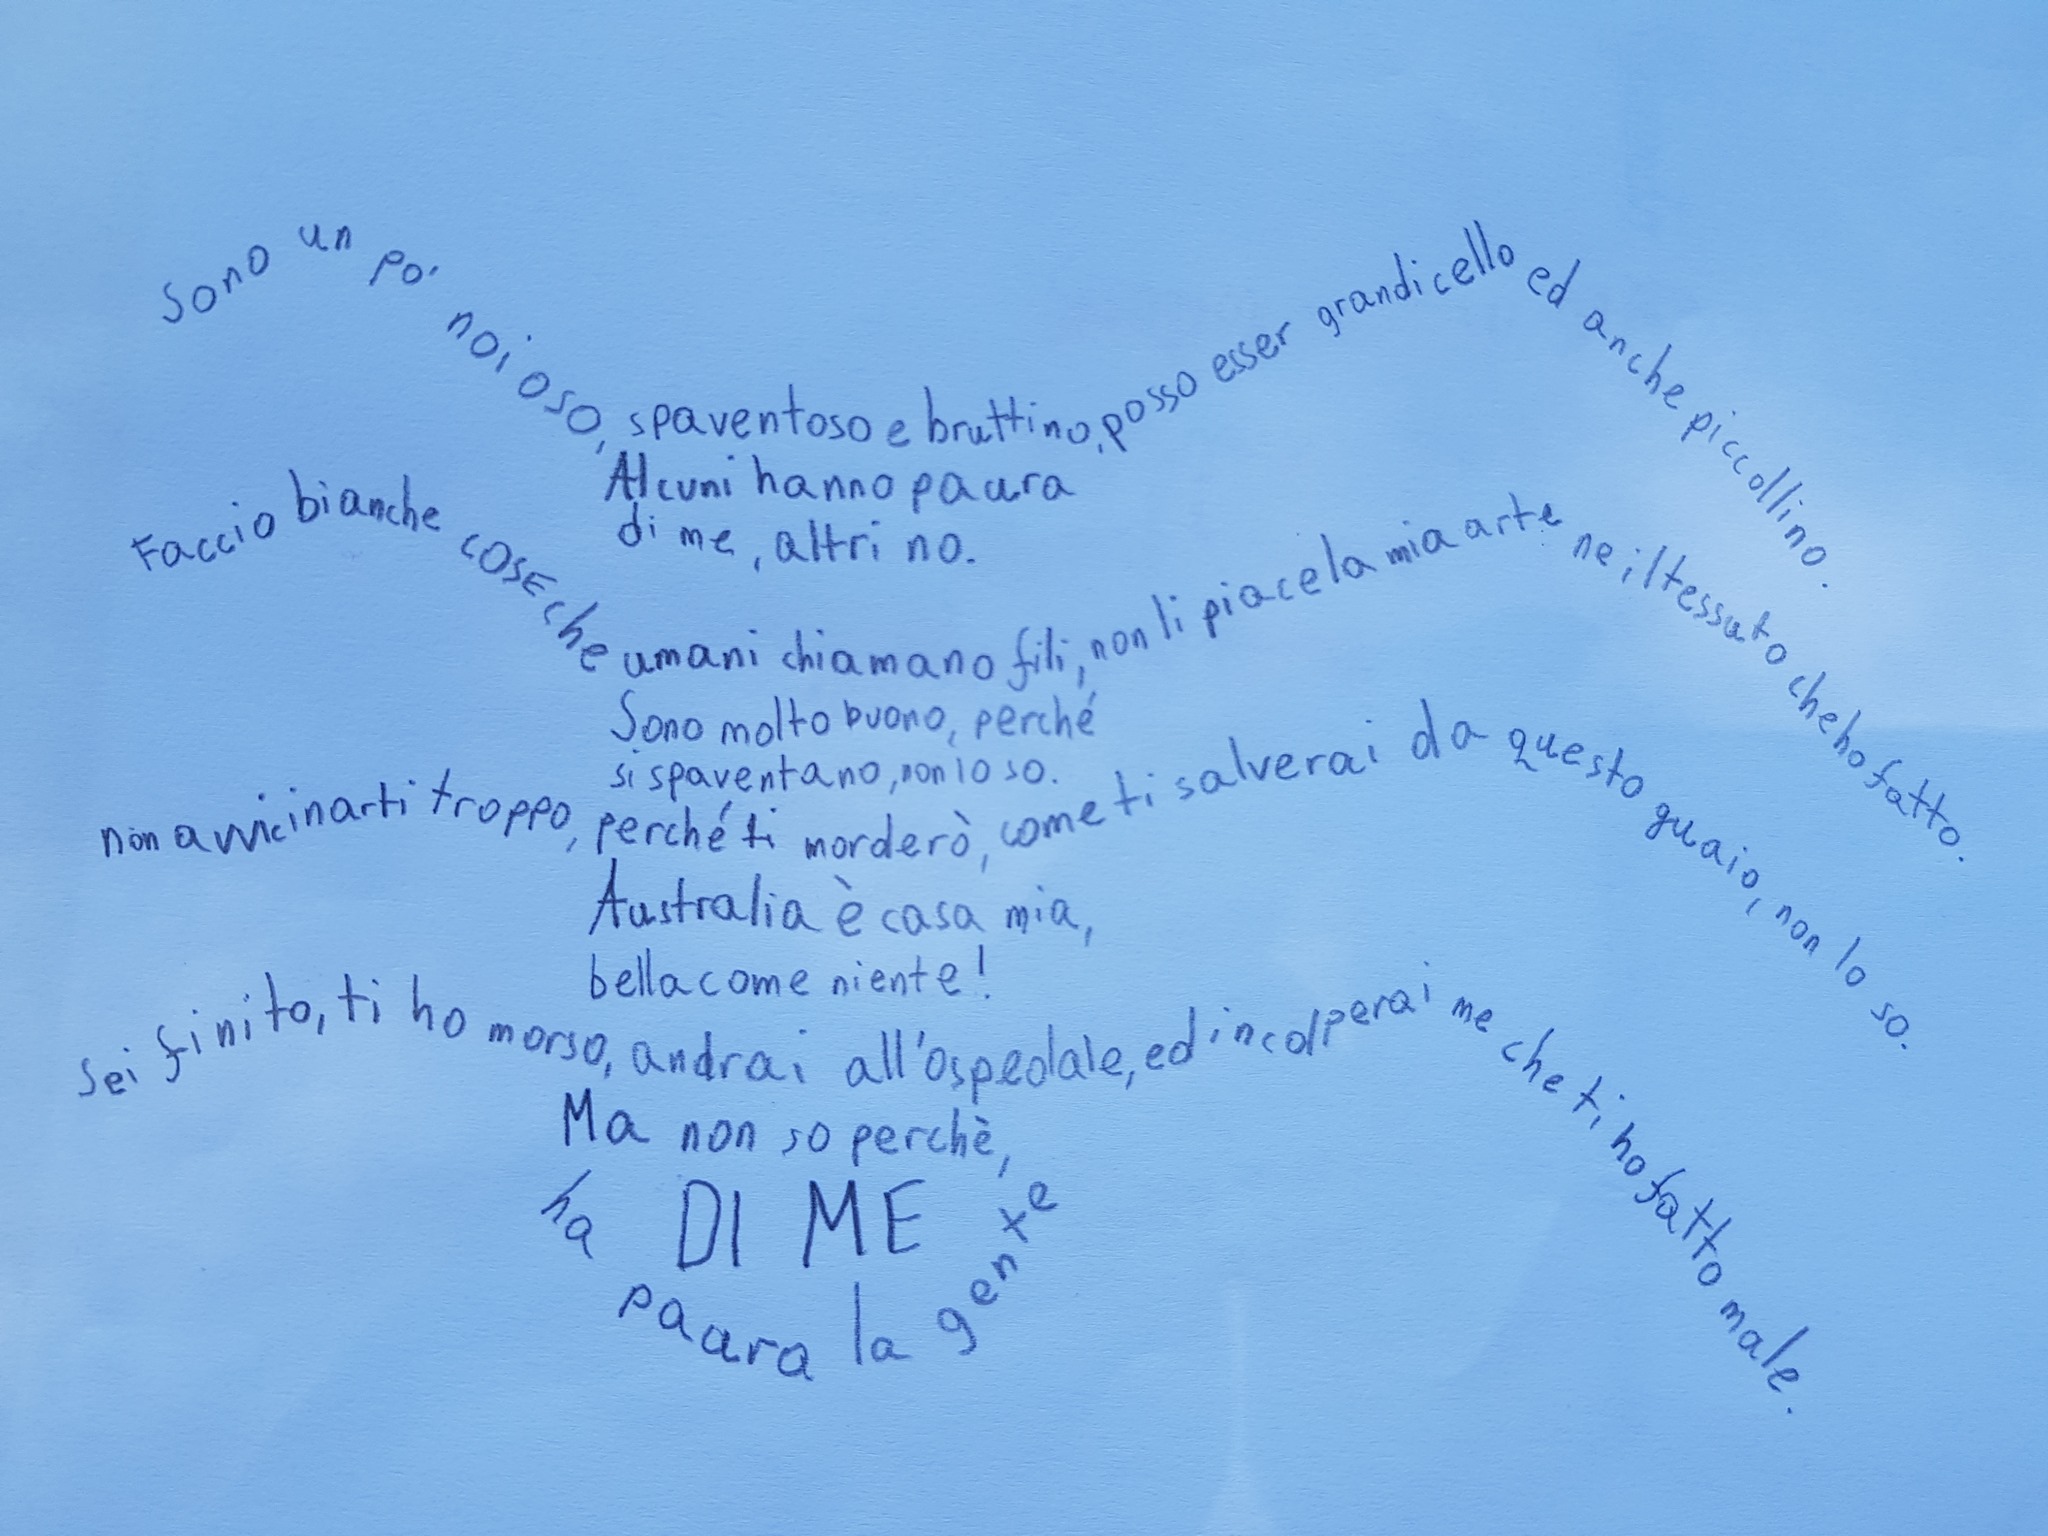 Sono un po' noioso, spaventoso e bruttino, posso esser grandicello ed anche piccollino.
Alcuni hanno paura
di me, altri no.
Faccio bianche cose che umani chiamano fili, non li piace la mia arte ne il tessuto che ho fatto.
Sono molto buono, perché
si spaventano, non lo so.
non avvicinarti troppo, perché ti morderò, come ti salverai da questo guaio, non lo so.
Australia è casa mia,
bella come niente!
Sei finito, ti ho morso, andrai all'ospedale, ed incolperai me che ti ho fatto male.
Ma non so perchè,
DI ME
ha paura la gente